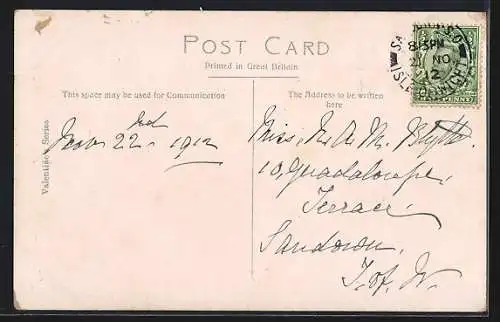 POST CARD
Printed in Great Britain
This space may be used for Communication
The Address to be written
here
Valentine's Series
Nov 22nd 1912
Miss. M. A. M. Blyth.
10, Guadaloupe
Terrace
Sandown,
I. of. W.
8.15PM
NO
12
ISLE